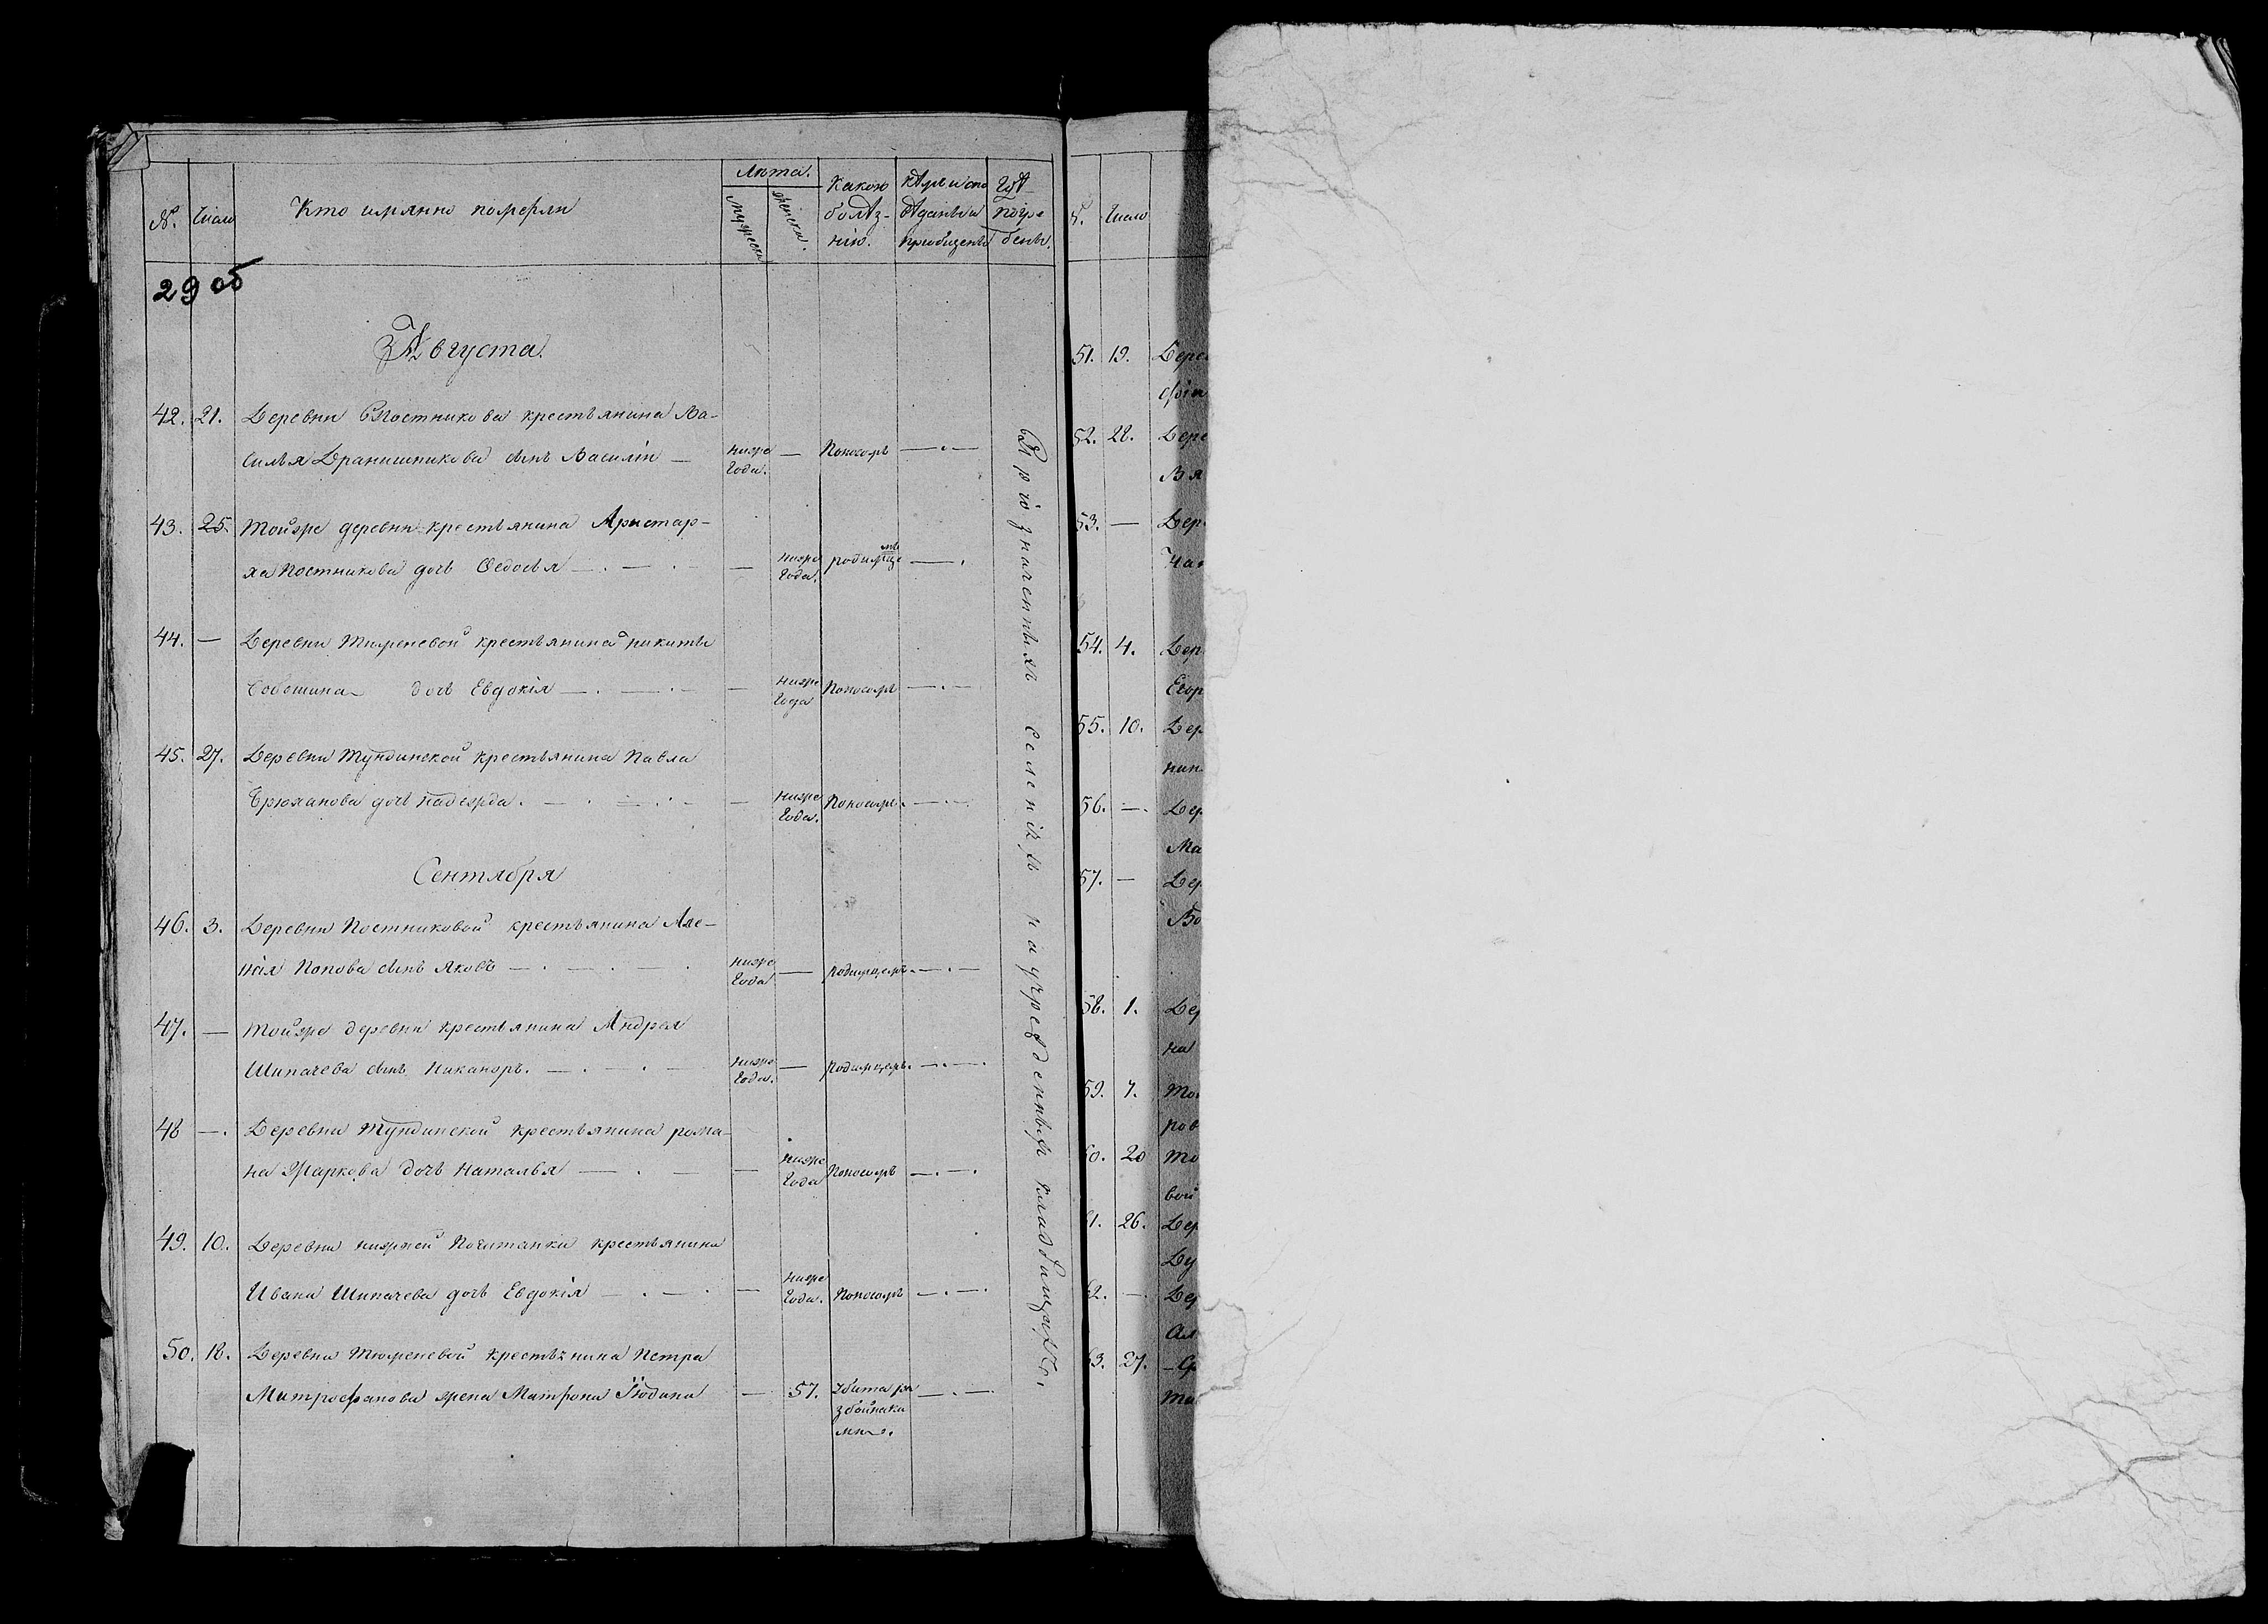 №. Число Кто имянно померли Лѣта. Мужеска Женска. Какою болѣзнію. Кѣмъ исповѣданы и пріобщены Гдѣ погребены.
29 об
Августа.
42. 21. Деревни Постникова крестьянина Ва-
силья Дранишникова сынъ Василій — ниже года. — Поносомъ —
43. 25. Тойже деревни крестьянина Аристар-
ха Постникова дочь Ѳедосья — — ниже года. родимце мъ —
44. — Деревни Тюменевой крестьянина никиты
дочь Евдокія — — ниже года Поносомъ —
45. 27. Деревни Тундинской крестьянина Павла
Брюханова дочь надежда. — — ниже года. Поносомъ. —
Сентября
46. 3. Деревни Постниковой крестьянина
Попова сынъ Яковъ — ниже года — родимцемъ. —
47. — Тойже деревни крестьянина Андрея
Шипачева сынъ Никаноръ. — ниже года. — родимцемъ. —
48 — Деревни Тундинской крестьянина рома-
на Маркова дочь Наталья — — ниже года Поносомъ —
49. 10. Деревни нижней Почитанки крестьянина
Ивана Шипачева дочь Евдокія — — ниже года. Поносомъ —
50. 18. Деревни Тюменевой крестьянина Петра
Митрофанова жена Матрона Юдина — 57. Убита ра
збойника
ми.
селеніяхъ на учрежденныхъ кладбищахъ.
№. Число
51. 19.
52. 22.
53. —
54. 4.
55. 10.
56. —
57. —
58. 1.
на
59. 7.
20
вой
26.
27.